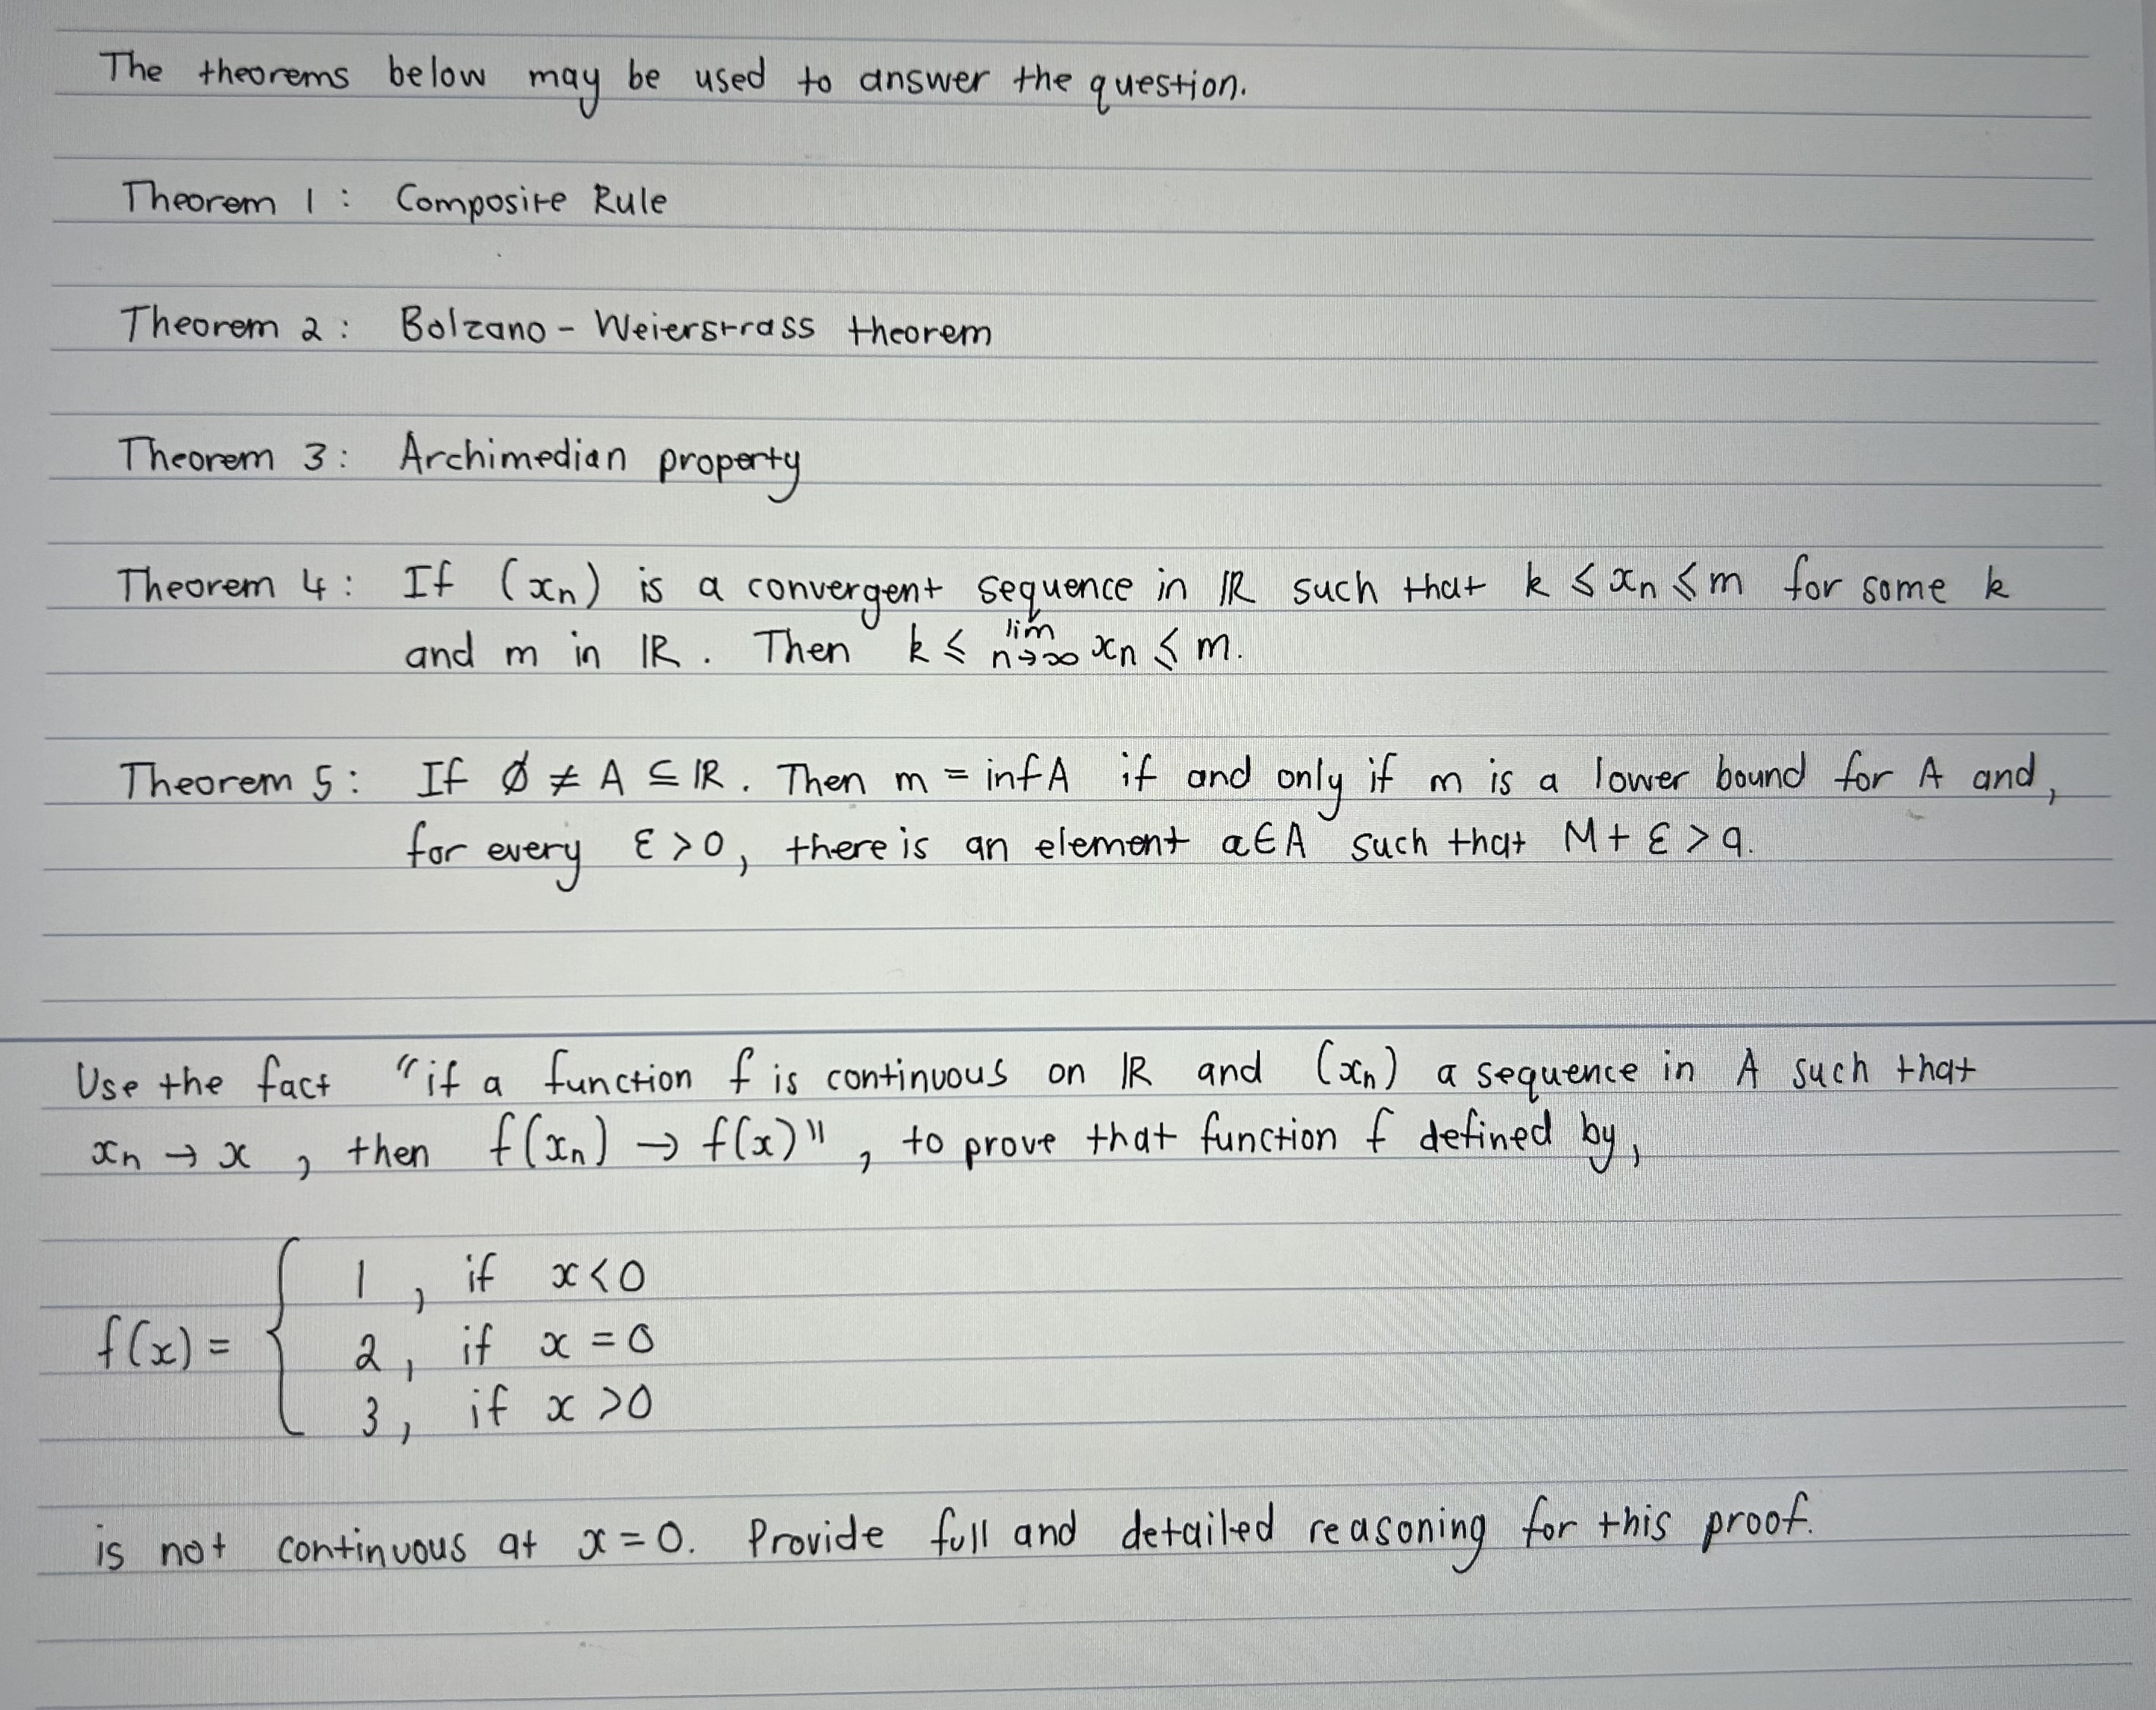 The theorems below may be used to answer the question.
Theorem 1 : Composite Rule
Theorem 2 : Bolzano - Weierstrass theorem
Theorem 3 : Archimedian property
Theorem 4 : If (xn) is a convergent sequence in ℝ such that k ≤ xn ≤ m for some k
and m in ℝ. Then k ≤ lim n→∞ xn ≤ m.
Theorem 5 : If ∅ ≠ A ⊆ ℝ. Then m = inf A if and only if m is a lower bound for A and,
for every ε > 0, there is an element a ∈ A such that M + ε > a.
Use the fact "if a function f is continuous on ℝ and (xn) a sequence in A such that
xn → x , then f(xn) → f(x)" , to prove that function f defined by,
1 , if x < 0
f(x) = { 2 , if x = 0
3 , if x > 0
is not continuous at x = 0. Provide full and detailed reasoning for this proof.